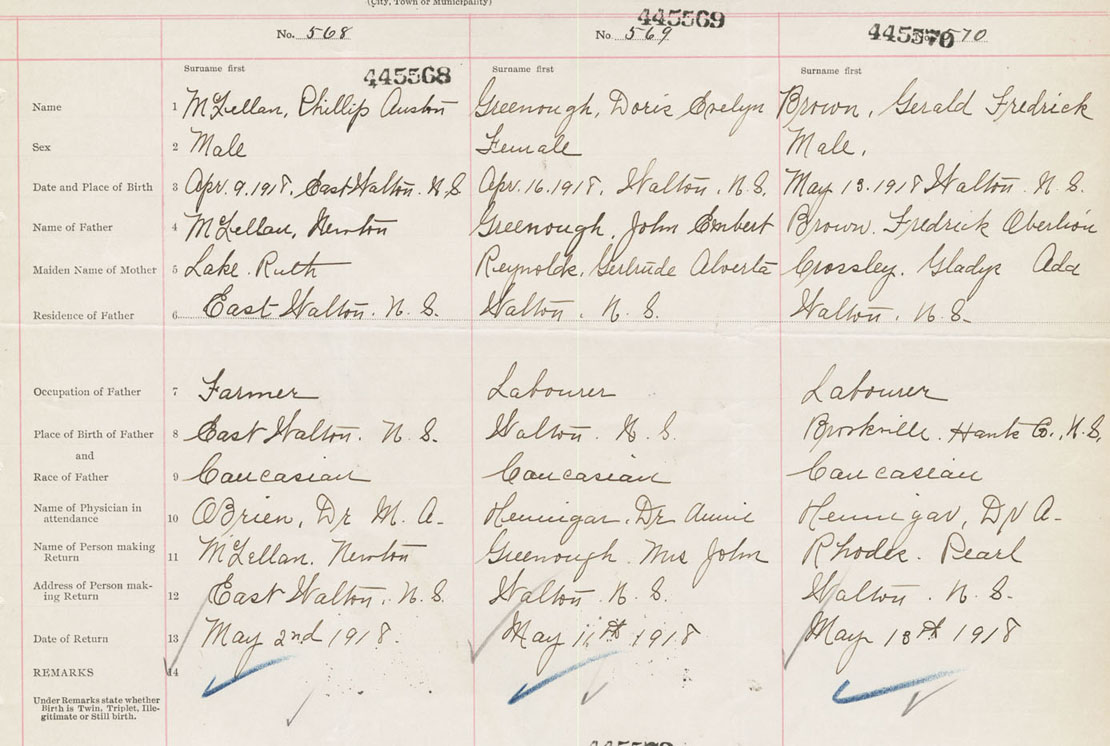 (City, Town or Municipality)
No. 568
445569
No. 569
445570
570
Surname first
445568
Surname first
Surname first
Name 1 McLellan, Phillip Auston Greenough, Doris Evelyn Brown, Gerald Fredrick
Sex 2 Male Female Male.
Date and Place of Birth 3 Apr. 9. 1918. East Walton. N. S. Apr. 16. 1918. Walton. N. S. May 13. 1918 Walton. N. S.
Name of Father 4 McLellan, Newton Greenough, John Embert Brown. Fredrick
Maiden Name of Mother 5 Lake. Ruth Reynolds, Gertrude Alverta Crossley. Gladys Ada
Residence of Father 6 East Walton. N. S. Walton. N. S. Walton. N. S.
Occupation of Father 7 Farmer Labourer Labourer
Place of Birth of Father 8 East Walton. N. S. Walton. N. S. Hants Co., N. S.
and
Race of Father 9 Caucasian Caucasian Caucasian
Name of Physician in
attendance 10 OBrien, Dr M. A. Hennigar, Dr Annie Hennigar, Dr A.
Name of Person making
Return 11 McLellan. Newton Greenough. Mrs John Rhodes. Pearl
Address of Person mak-
ing Return 12 East Walton. N. S. Walton. N. S. Walton. N. S.
Date of Return 13 May 2nd 1918. May 11th 1918 May 13th 1918
REMARKS 14
Under Remarks state whether
Birth is Twin, Triplet, Ille-
gitimate or Still birth.